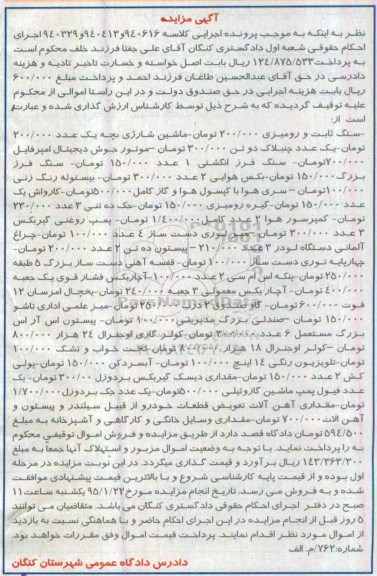 آگهی مزایده
نظر به اینکه به موجب پرونده اجرایی کلاسه ۹۴۰۶۱۶و۹۴۰۴۱۳و۹۴۰۳۲۹ اجرای
احکام حقوقی شعبه اول دادگستری کنگان آقای علی جعفا فرزند خلف محکوم است
به پرداخت۱۲۴/۸۷۵/۵۳۳ ریال بابت اصل خواسته و خسارت تاخیر تادیه و هزینه
دادرسی در حق آقای عبدالحسین طاغان فرزند احمد و پرداخت مبلغ ۶۰۰/۰۰۰
ریال بابت هزینه اجرایی در حق صندوق دولت و در این راستا اموالی از محکوم
علیه توقیف گردیده که به شرح ذیل توسط کارشناس ارزش گذاری شده و عبارت
است از:
-سنگ ثابت و رومیزی ۲۰۰/۰۰۰ تومان-ماشین شارژی بچه یک عدد ۲۰۰/۰۰۰
تومان-یک عدد چنبلاک دو تن ۳۰۰/۰۰۰ تومان -موتور جوش دیجیتال امپرفایل
۷۰۰/۰۰۰تومان- سنگ فرز انگشتی ۱ عدد ۱۵۰/۰۰۰ تومان- سنگ فرز
بزرگ۱۵۰/۰۰۰ تومان-بکس هوایی ۲ عدد ۳۰۰/۰۰۰ تومان- پیستوله رنگ زنی
۱۰۰/۰۰۰تومان - سری هوا با کپسول هوا و گاز کامل۵۰۰/۰۰۰تومان-کارواش یک
عدد ۱۵۰/۰۰۰ تومان- گیره رومیزی ۱۵۰/۰۰۰ تومان-جک ده تنی ۳ عدد ۲۳۰/۰۰۰
تومان- کمپرسور هوا ۲ عدد کامل ۱/۴۰۰/۰۰۰ تومان- پمپ روغنی گیربکس
۳ عدد ۳۰۰/۰۰۰ تومان- میز توری دست ساز ۴ عدد ۱۰۰/۰۰۰ تومان-چراغ
آلمانی دستگاه لودر ۳ عدد ۲۱۰/۰۰۰ - پیستون ده تن ۲ عدد ۲۰۰/۰۰۰ تومان-
چهارپایه توری دست ساز ۱۰۰/۰۰۰ تومان- قفسه آهنی دست ساز بزرگ ۵ طبقه
۲۵۰/۰۰۰ تومان-پنکه اس ام سی ۲ عدد ۱۰۰/۰۰۰-آچاربکس فشار قوی یک جعبه
۴۰۰/۰۰۰ تومان- آچار بکس معمولی ۳ جعبه ۲۴۰/۰۰۰ تومان-یخچال امرسان ۱۲
فوت ۶۰۰/۰۰۰ تومان- گاو صندوق ۲ درب ۲۵۰/۰۰۰ تومان- میز علمی اداری تاشو
۱۵۰/۰۰۰ تومان -صندلی بزرگ مدیریتی۱۰۰/۰۰۰ تومان- پیستون اس آر اس
بزرگ مستعمل ۶ عدد ۳۰۰/۰۰۰ تومان-کولر گازی اوجنرال ۲۴ هزار ۸۰۰/۰۰۰
تومان -کولر اوجنرال ۱۸ هزار ۸۰۰/۰۰۰ تومان-تخت خواب و تشک ۱۰۰/۰۰۰
تومان-تلویزیون رنگی ۱۴ اینچ ۱۰۰/۰۰۰ تومان- آبسردکن ۱۵۰/۰۰۰ تومان-پولی
کش ۲ عدد ۱۵۰/۰۰۰ تومان-مقداری دیسک گیربکس پردوزل ۳۰۰/۰۰۰ تومان- یک
عدد فیول پمپ ماشین گازوئیلی ۵۰۰/۰۰۰تومان-یک عدد جک پردوزل ۱/۷۰۰/۰۰۰
تومان-مقداری آهن آلات تعویض قطعات خودرو از قبیل سیلندر و پیستون و
آهن آلات ۷۰۰/۰۰۰ تومان-مقداری وسایل خانگی و کارگاهی و آشپزخانه به مبلغ
۵۹۴/۵۰۰ تومان دادگاه قصد دارد از طریق مزایده و فروش اموال توقیفی محکوم
به را پرداخت نماید. با توجه به وضعیت اموال مزبور و استهلاک آنها جمعاً به مبلغ
۱۴۳/۳۶۳/۳۰۰ ریال برآورد و قیمت گذاری میگردد. در این نوبت مزایده در مرحله
اول بوده و از قیمت پایه کارشناسی شروع و با بالاترین قیمت پیشنهادی موافقت
شده و به فروش می رسد. تاریخ انجام مزایده مورخ۹۵/۱/۲۲ یکشنبه ساعت ۱۱
صبح در دفتر اجرای احکام حقوقی دادگستری کنگان می باشد. متقاضیان می توانند
۵ روز قبل از انجام مزایده در این اجرای احکام حاضر و با هماهنگی نسبت به بازدید
از اموال مورد نظر اقدام نمایند. پرداخت قیمت اموال وفق مقررات خواهد بود.
شماره:۷۶۲/م. الف
دادرس دادگاه عمومی شهرستان کنگان